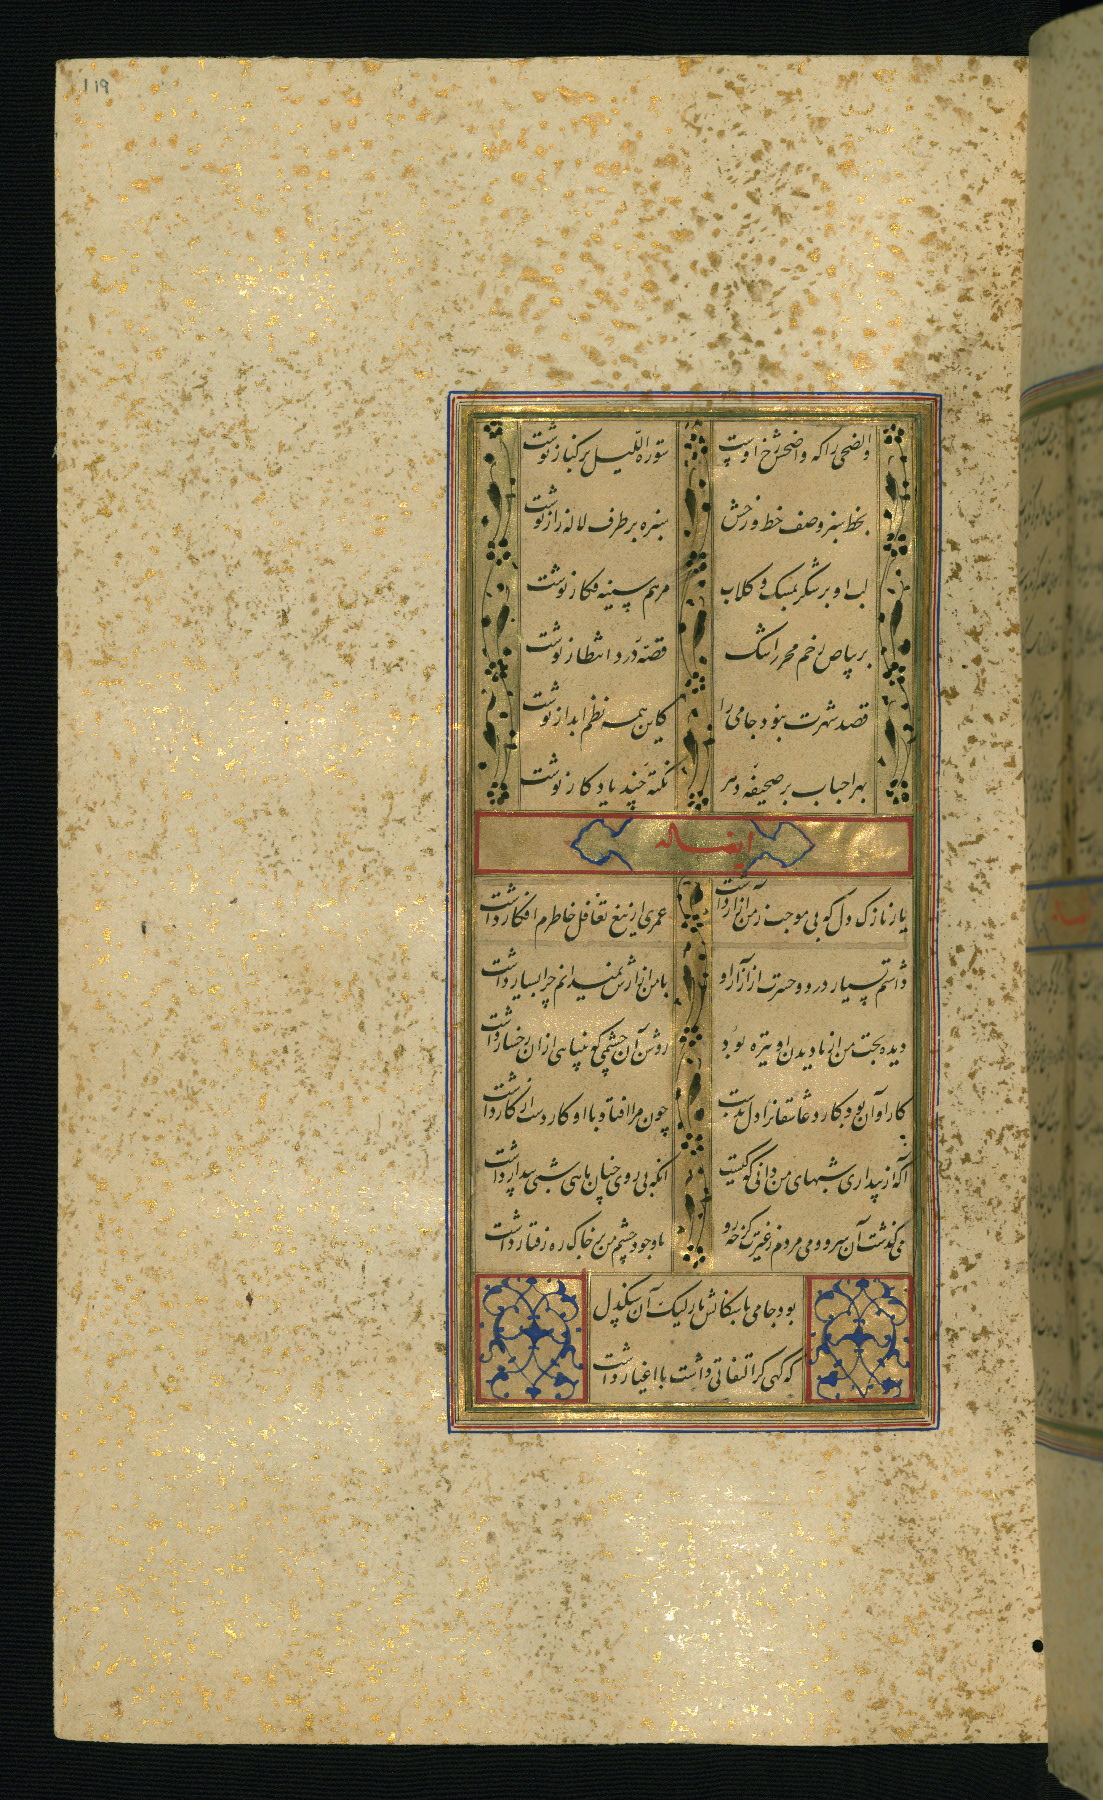 ۱۱۹
والضحی را که واضحش رخ اوست
سوره اللیل بر کنار نوشت
بخط سبز وصف خط و رخش
سبزه بر طرف لاله زار نوشت
لب او بر شکر بمشک و گلاب
مرهم سینه فکار نوشت
بر بیاض رخم محرر اشک
قصه درد انتظار نوشت
قصد شهرت نبود جامی را
کاین همه نظم ابدار نوشت
بهر احباب بر صحیفه دهر
نکته چند یادکار نوشت
ایضا له
یار نازک دل که بی موجب ز من آزار داشت
عمری از تیغ تغافل خاطرم افکار داشت
داشتم بسیار درد و حسرت از آزار او
با من آزارش نمیدانم چرا بسیار داشت
دیده بخت من از نادیدن او تیره بود
روشن آن چشمی که بینایی از ان رخسار داشت
کار او آن بود کارد عاشقانرا دل بدست
چون مرا افتاد با او کار دست از کار داشت
آکه از بیداری شبهای من دانی که کیست
انکه بی روی چنان ماهی شبی بیدار داشت
می گذشت آن سرو و می مردم ز غیرت کز چه رو
با وجود چشم من بر خاک ره رفتار داشت
بود جامی با سکانش یار لیک آن سنکدل
که کهی کر التفاتی داشت با اغیار داشت